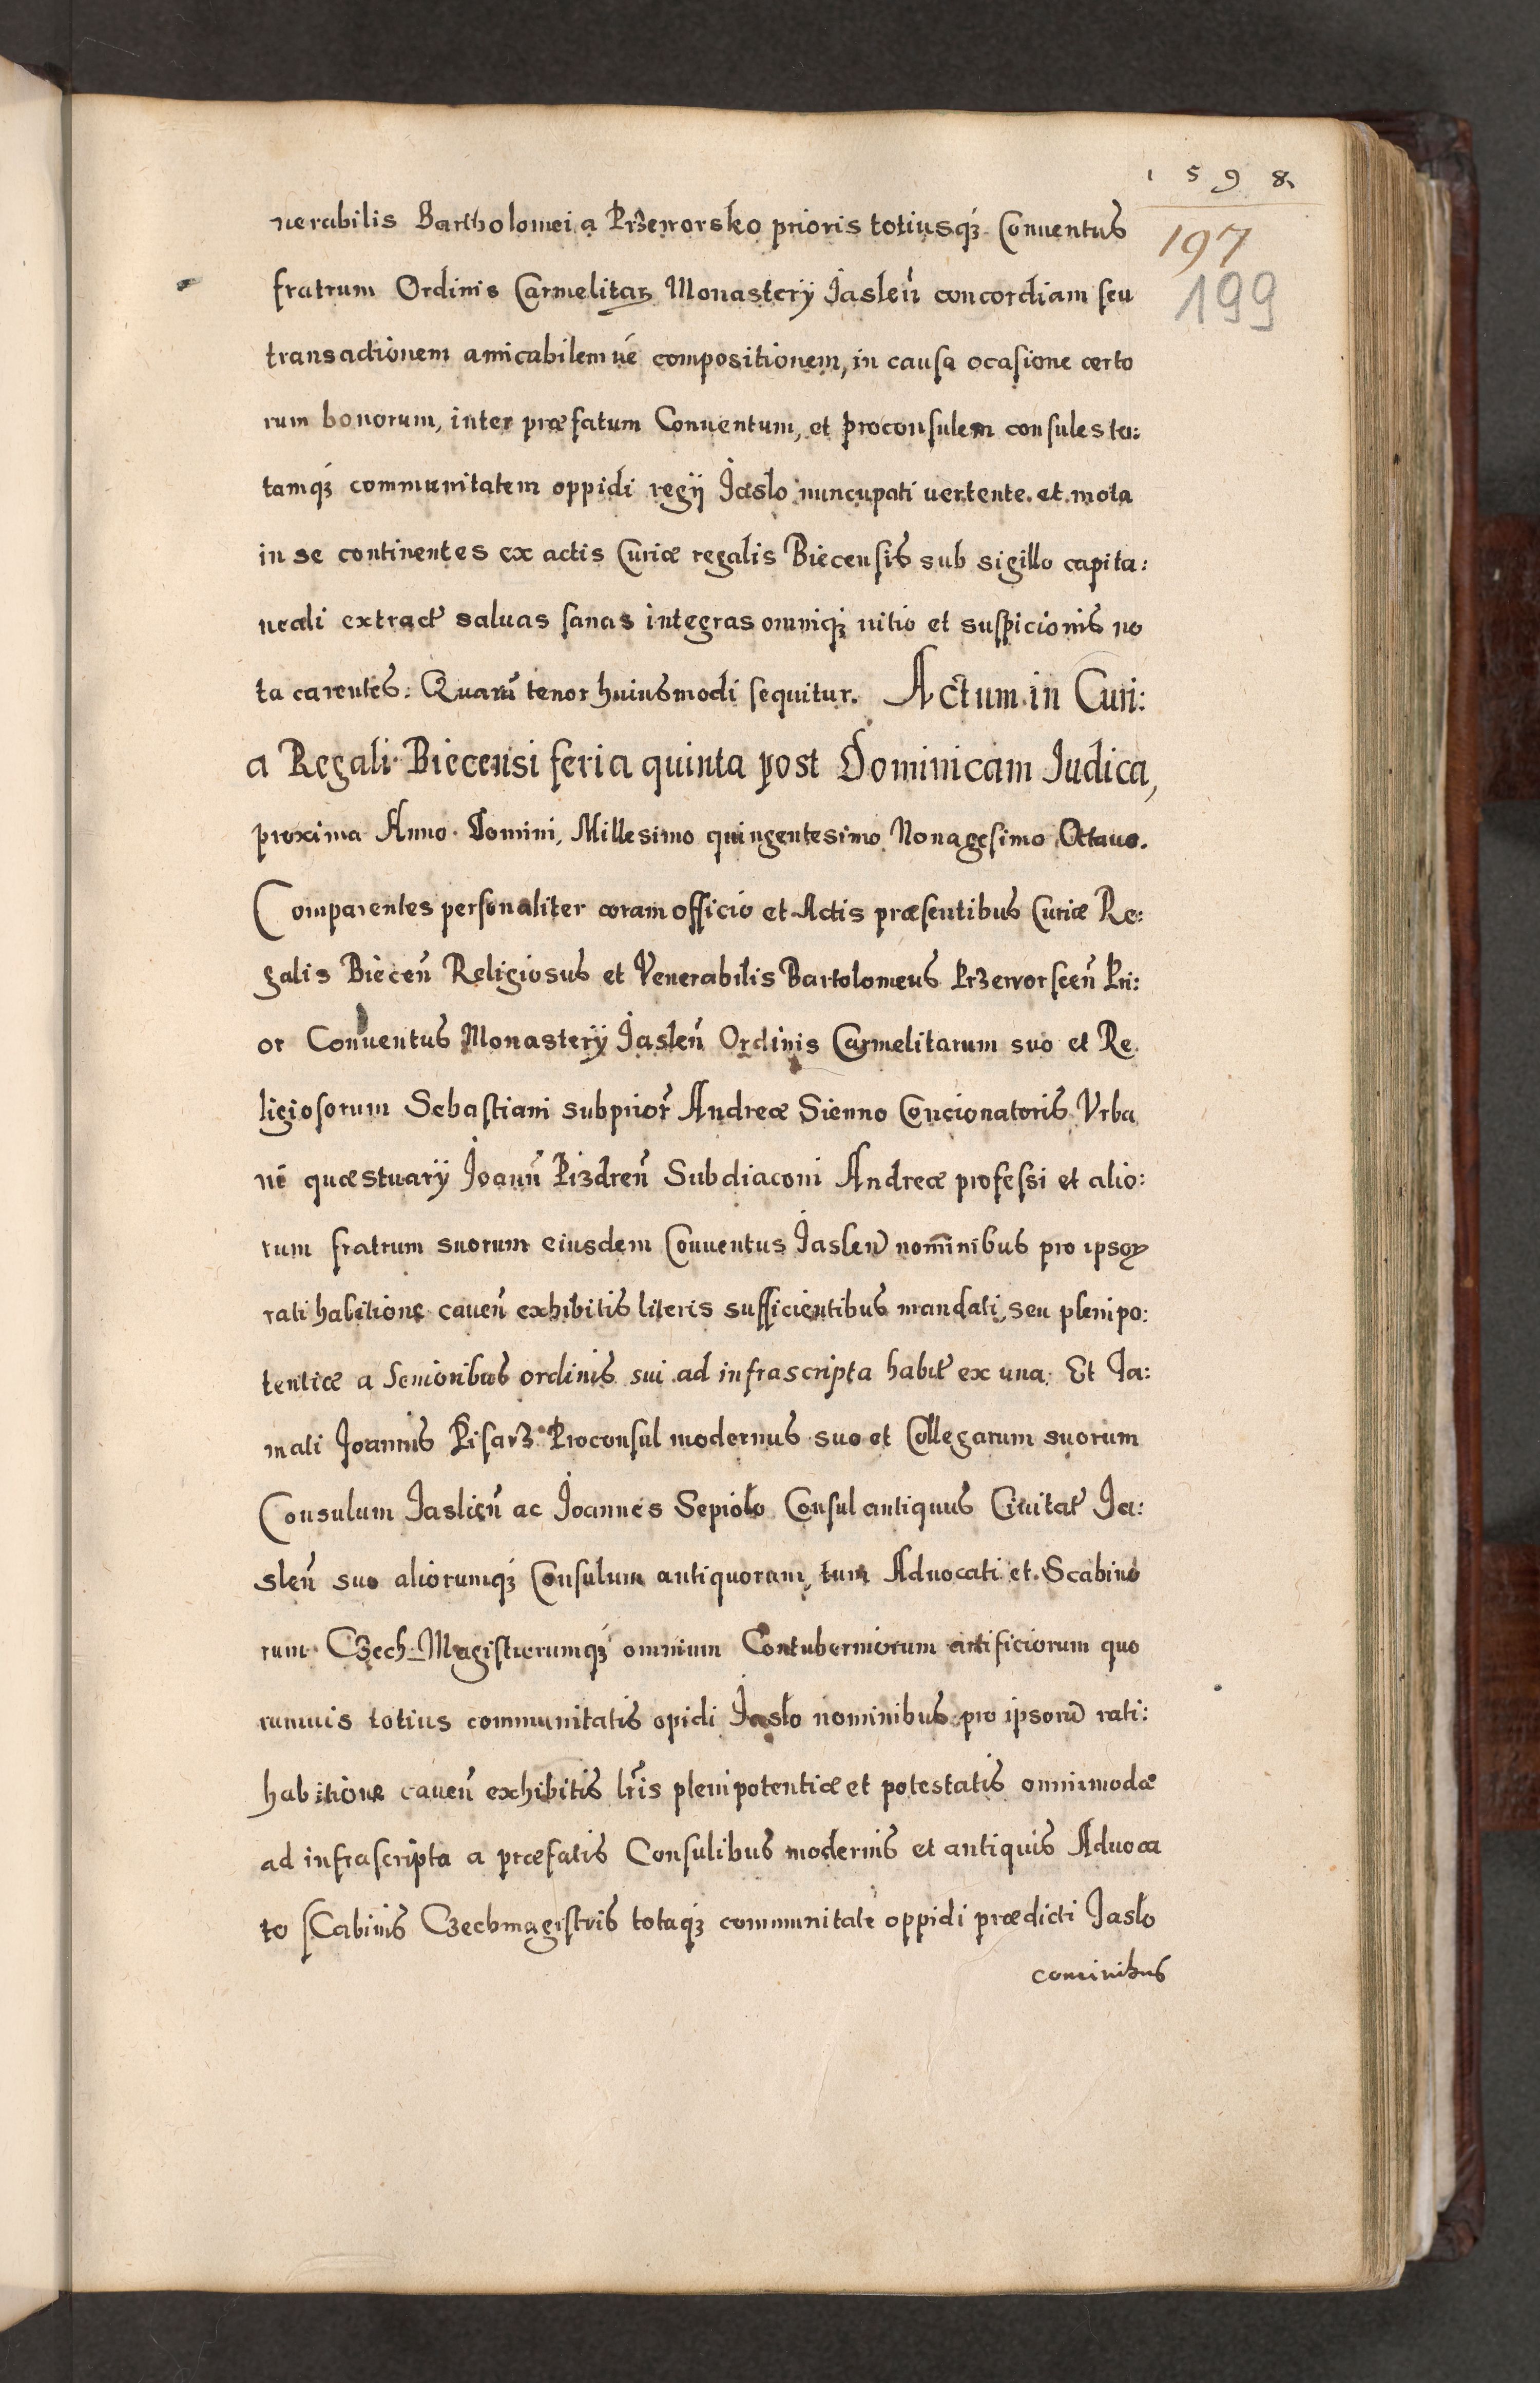 1 5 9 8.
197
199
nerabilis Bartholomei a Przeworsko prioris totiusq́ʒ Conuentus
fratrum Ordinis Carmelitaꝝ Monasterÿ Jasleñ concordiam seu
transactionem amicabilemué compositionem, in causa ocasione certo
rum bonorum, inter præfatum Conuentum, et proconsulem consules to:
tamq́ʒ communitatem oppidi regÿ Jaslo nuncupati uertente et mota
in se continentes ex actis Curiæ regalis Biecensis sub sigillo capita:
neali extract̃ saluas sanas integras omniq́ʒ uitio et suspicionis no
ta carentes: Quarũ tenor huiusmodi sequitur. Actum in Curi:
a Regali Biecensi feria quinta post Dominicam Iudica,
proxima Anno Domini, Millesimo quingentesimo Nonagesimo Octauo.
Comparentes personaliter coram officio et Actis præsentibus Curiæ Re:
galis Bieceñ Religiosus et Venerabilis Bartolomeus Przeworsceñ Pri:
or Conuentus Monasterÿ Jasleñ Ordinis Carmelitarum suo et Re
ligiosorum Sebastiani subprior̃ Andreæ Sienno Concionatoris Vrba
ni quæstuarÿ Joanñ Pizdreñ Subdiaconi Andreæ professi et alio:
rum fratrum suorum eiusdem Conuentus Jasleñ nominibus pro ipsoꝝ
rati habitione caueñ exhibitis literis sufficientibus mandati, seu plenipo:
tentiæ a Senioribus ordinis sui ad infrascripta habit̃ ex una. Et Fa:
mati Joannis Pisarz Proconsul modernus suo et Collegarum suorum
Consulum Jaslieñ ac Joannes Sepioło Consul antiquus Ciuitat̃ Ja:
sleñ suo aliorumq́ʒ Consulum antiquorum, tum Aduocati et Scabino
rum Czech Magistrorumq́ʒ omnium Contuberniorum artificiorum quo
rumuis totius communitatis opidi Jasło nominibus pro ipsorũ rati:
habitione caueñ exhibitis lr̃is plenipotentiæ et potestatis omnimodæ
ad infrascripta a præfatis Consulibus modernis et antiquis Aduoca
to sCabinis Czechmagistris totaq́ʒ communitate oppidi prædicti Jasło
cominibus